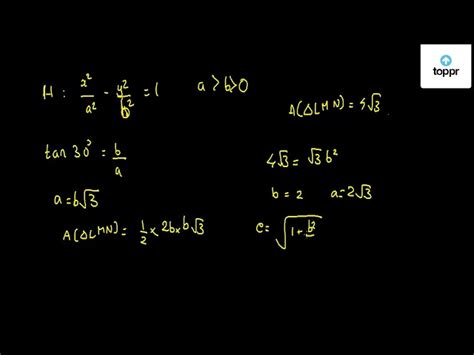 toppr
H : x²/a² - y²/b² = 1 a > b > 0
A(ΔLMN) = 4√3
tan 30° = b/a
4√3 = √3 b²
a = b√3
b = 2 a = 2√3
A(ΔLMN) = 1/2 × 2b × b√3
e = √(1 + b²